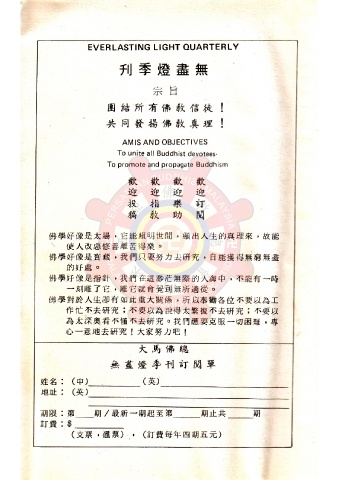 EVERLASTING LIGHT QUARTERLY
刊季燈盡無
宗旨
團結所有佛教信徒！
共同發揚佛教真理！
AMIS AND OBJECTIVES
To unite all Buddhist devotees.
To promote and propagate Buddhism
歡歡歡歡
迎迎迎迎
投指樂訂
稿教助閱
佛學好像是太陽，它能照明世間，顯出人生的真理來，故能
使人改惡修善離苦得樂。
佛學好像是寶藏，我們只要努力去研究，自能獲得無窮無盡
的好處。
佛學好像是指針，我們在這茫茫無際的人海中，不能有一時
一刻離了它，離它就會覺到無所適從。
佛學對於人生都有如此重大關係，所以奉勸各位不要以為工
作忙不去研究；不要以為說得太繁複不去研究；不要以
為太深奧看不懂不去研究。我們應要克服一切困難，專
心一意地去研究！大家努力吧！
大馬佛總
無盡燈季刊訂閱單
姓名：（中） （英）
地址：（英）
期限：第 期／最新一期起至第 期止共 期
訂費：$
（支票，滙票），（訂費每年四期五元）